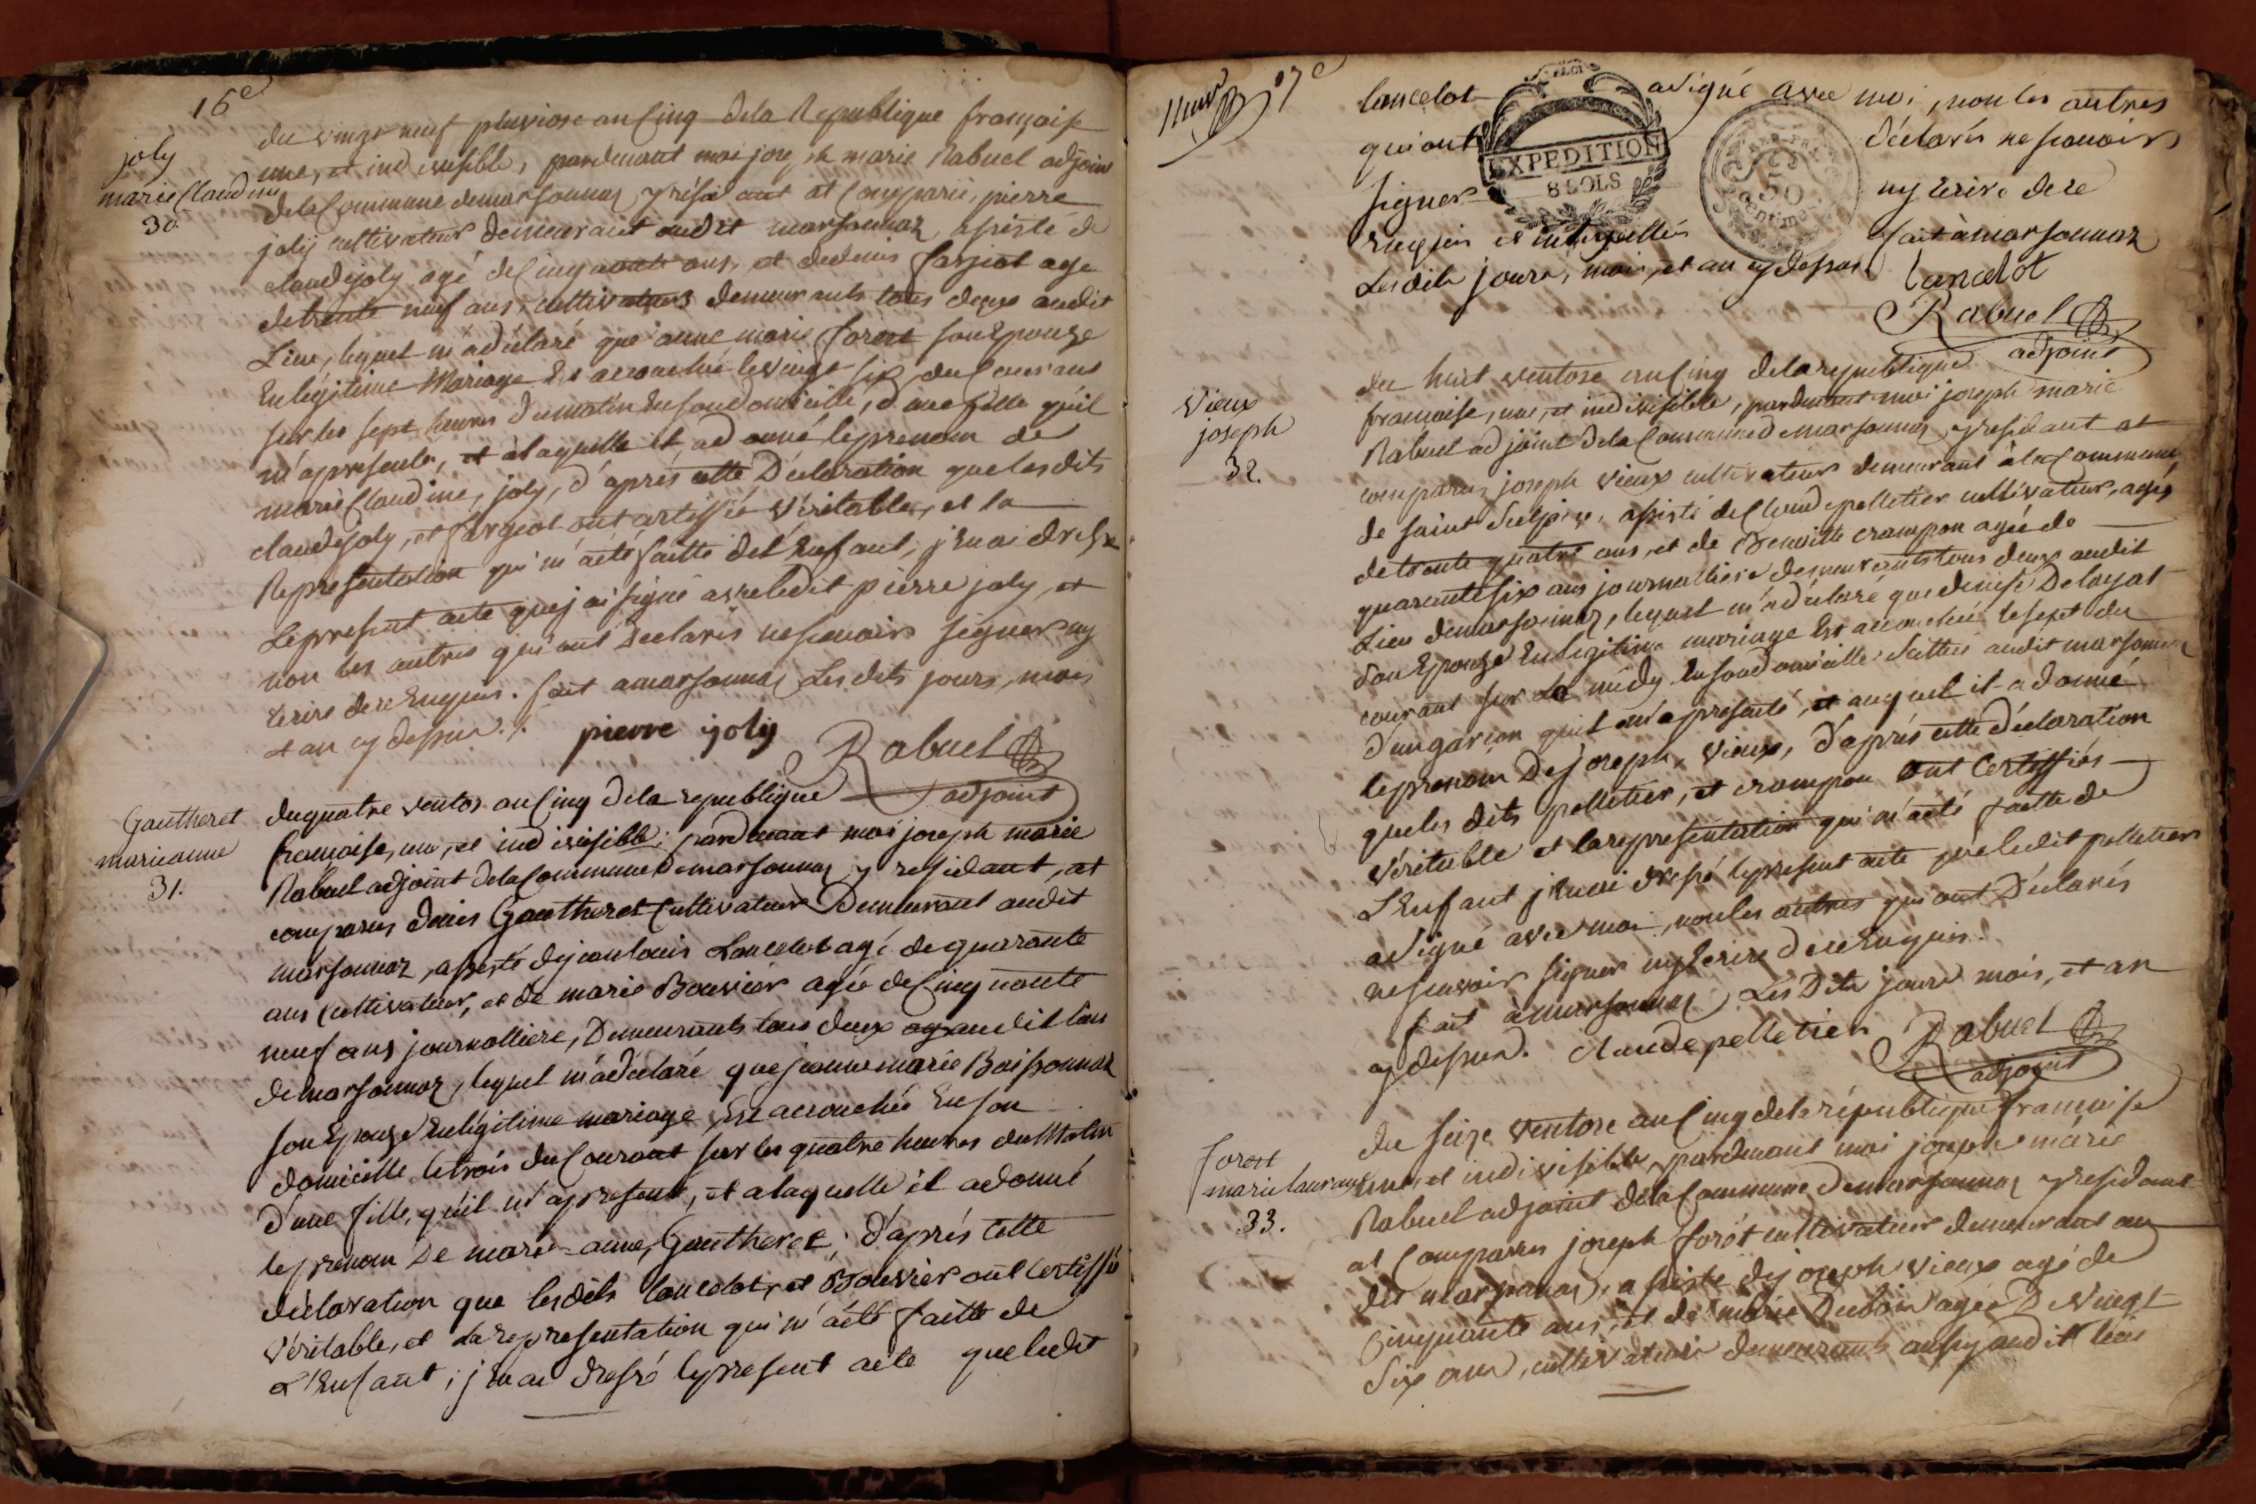 16e
joly
marie Claudine
30.
du vingt neuf pluviose an Cinq de la Republique françoise
une, et indivisible, pardevant moi joseph marie Rabuel adjoint
de la Commune de marsonnaz y résidant at Comparu, pierre
joly cultivateur demeurant audit marsonnaz, assisté de
claude joly agé de Cinquante ans, et de denis farjeot age
de trente neuf ans, cultivateurs demeurants tous deux audit
Lieu, lequel m'a déclaré que anne marie forest son Epouze
En légitime Mariage Est accouchée le vingt six du Courant
sur les sept heures du matin En son domicille, d'une fille qu'il
m'a présenté, et à laquelle il a donné le prenom de
marie Claudine, joly, d'après cette Déclaration que les dits
claude joly, et farjeot ont certiffié Véritable, et la
Représentation qui m'a été faitte de l'Enfant, j'En ai dressé
Le présent acte que j'ai signé avec ledit pierre joly, et
non les autres qui ont déclarés ne scavoir signer ny
Ecrire de ce Enquis. fait a marsonnaz Les dits jours, mois
et an cy dessus ./.
pierre joly
Rabuel
adjoint
Gautheret
marie anne
31.
du quatre ventos an Cinq de la republique
francoise, une, et indivisible; pardevant moi joseph marie
Rabuel adjoint de la Commune de marsonnaz y residant, at
comparus denis Gautheret Cultivateur Demeurant audit
marsonnaz, assisté de jean louis Lancelot agé de quarante
ans Cultivateur, et de marie Bouvier agée de Cinquante
neuf ans journalliere, Demeurants tous deux audit lieu
de marsonnaz, lequel m'a déclaré que jeanne marie Boissonnaz
son Epouze En légitime mariage, Est accouchée En son
domicille le trois du Courant sur les quatre heures du Matin
d'une fille, qu'il m'a présenté, et a laquelle il a donné
le prenom De marie-anne, Gautheret; d'après cette
déclaration que les dits lancelot, et Bouvier ont Certiffié
Véritable, et La representation qui m'a été faitte de
L'Enfant; j'En ai dressé le present acte que ledit
17e
lancelot a signé avec moi, non les autres
qui ont déclarés ne scavoir
signer ny Ecrire de ce
Enquis et interpellés fait à marsonnaz
Les dits jours, mois, et an cy dessus
EXPEDITION
8 SOLS
50
Centimes
Lancelot
Rabuel
adjoint
Vieux
joseph
32.
du huit ventose an Cinq de la republique
francoise, une, et indivisible, pardevant moi joseph marie
Rabuel adjoint de la Commune de marsonnaz y residant at
comparus joseph vieux cultivateur demeurant à la Commune
de saint Sulpice, assisté de Claude pelletier cultivateur, agé
de trente quatre ans, et de crampon agée de
quarante six ans journalliere demeurants tous deux audit
Lieu de marsonnaz, lequel m'a déclaré que denise Delayat
son Epouze En legitime mariage Est accouchée le sept du
courant sur Le midy En son domicille Scittué audit marsonnaz
d'un garçon qu'il m'a présenté, et auquel il a donné
le prenom De joseph, vieux, d'après cette déclaration
que les dits pelletier, et crampon ont Certiffiés
Véritable et la representation qui m'a été faitte de
L'Enfant j'En ai dressé le present acte que ledit pelletier
a signé avec moi, non les autres qui ont Déclarés
ne scavoir signer ny Ecrire de ce Enquis.
fait à marsonnaz Les Dits jours mois, et an
cy dessus. claude pelletier
Rabuel
adjoint
forest
marie laurant
33.
du seize ventose an Cinq de la république francoise
une, et indivisible, pardevant moi joseph marie
Rabuel adjoint de la Commune de marsonnaz y residant
at Comparus joseph forêt cultivateur demeurant au
dit marsonnaz, assisté de joseph vieux agé de
Cinquante ans, et de marie Dubois agée De Vingt
six ans, cultivateurs demeurants aussy audit lieu